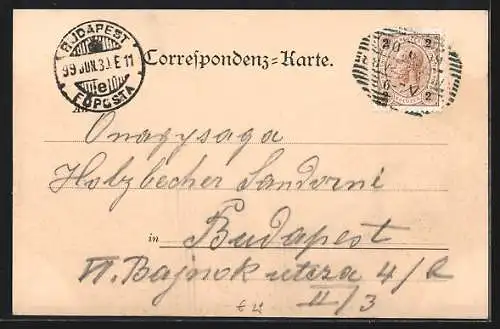 BUDAPEST
99 JUN. 30. E 11
e
FŐPOSTA
Correspondenz=Karte.
2 2
2 2
Onagysaga
Holzbecher Sandorni
in Budapest
VI. Bajnok utcza 4/
II/3